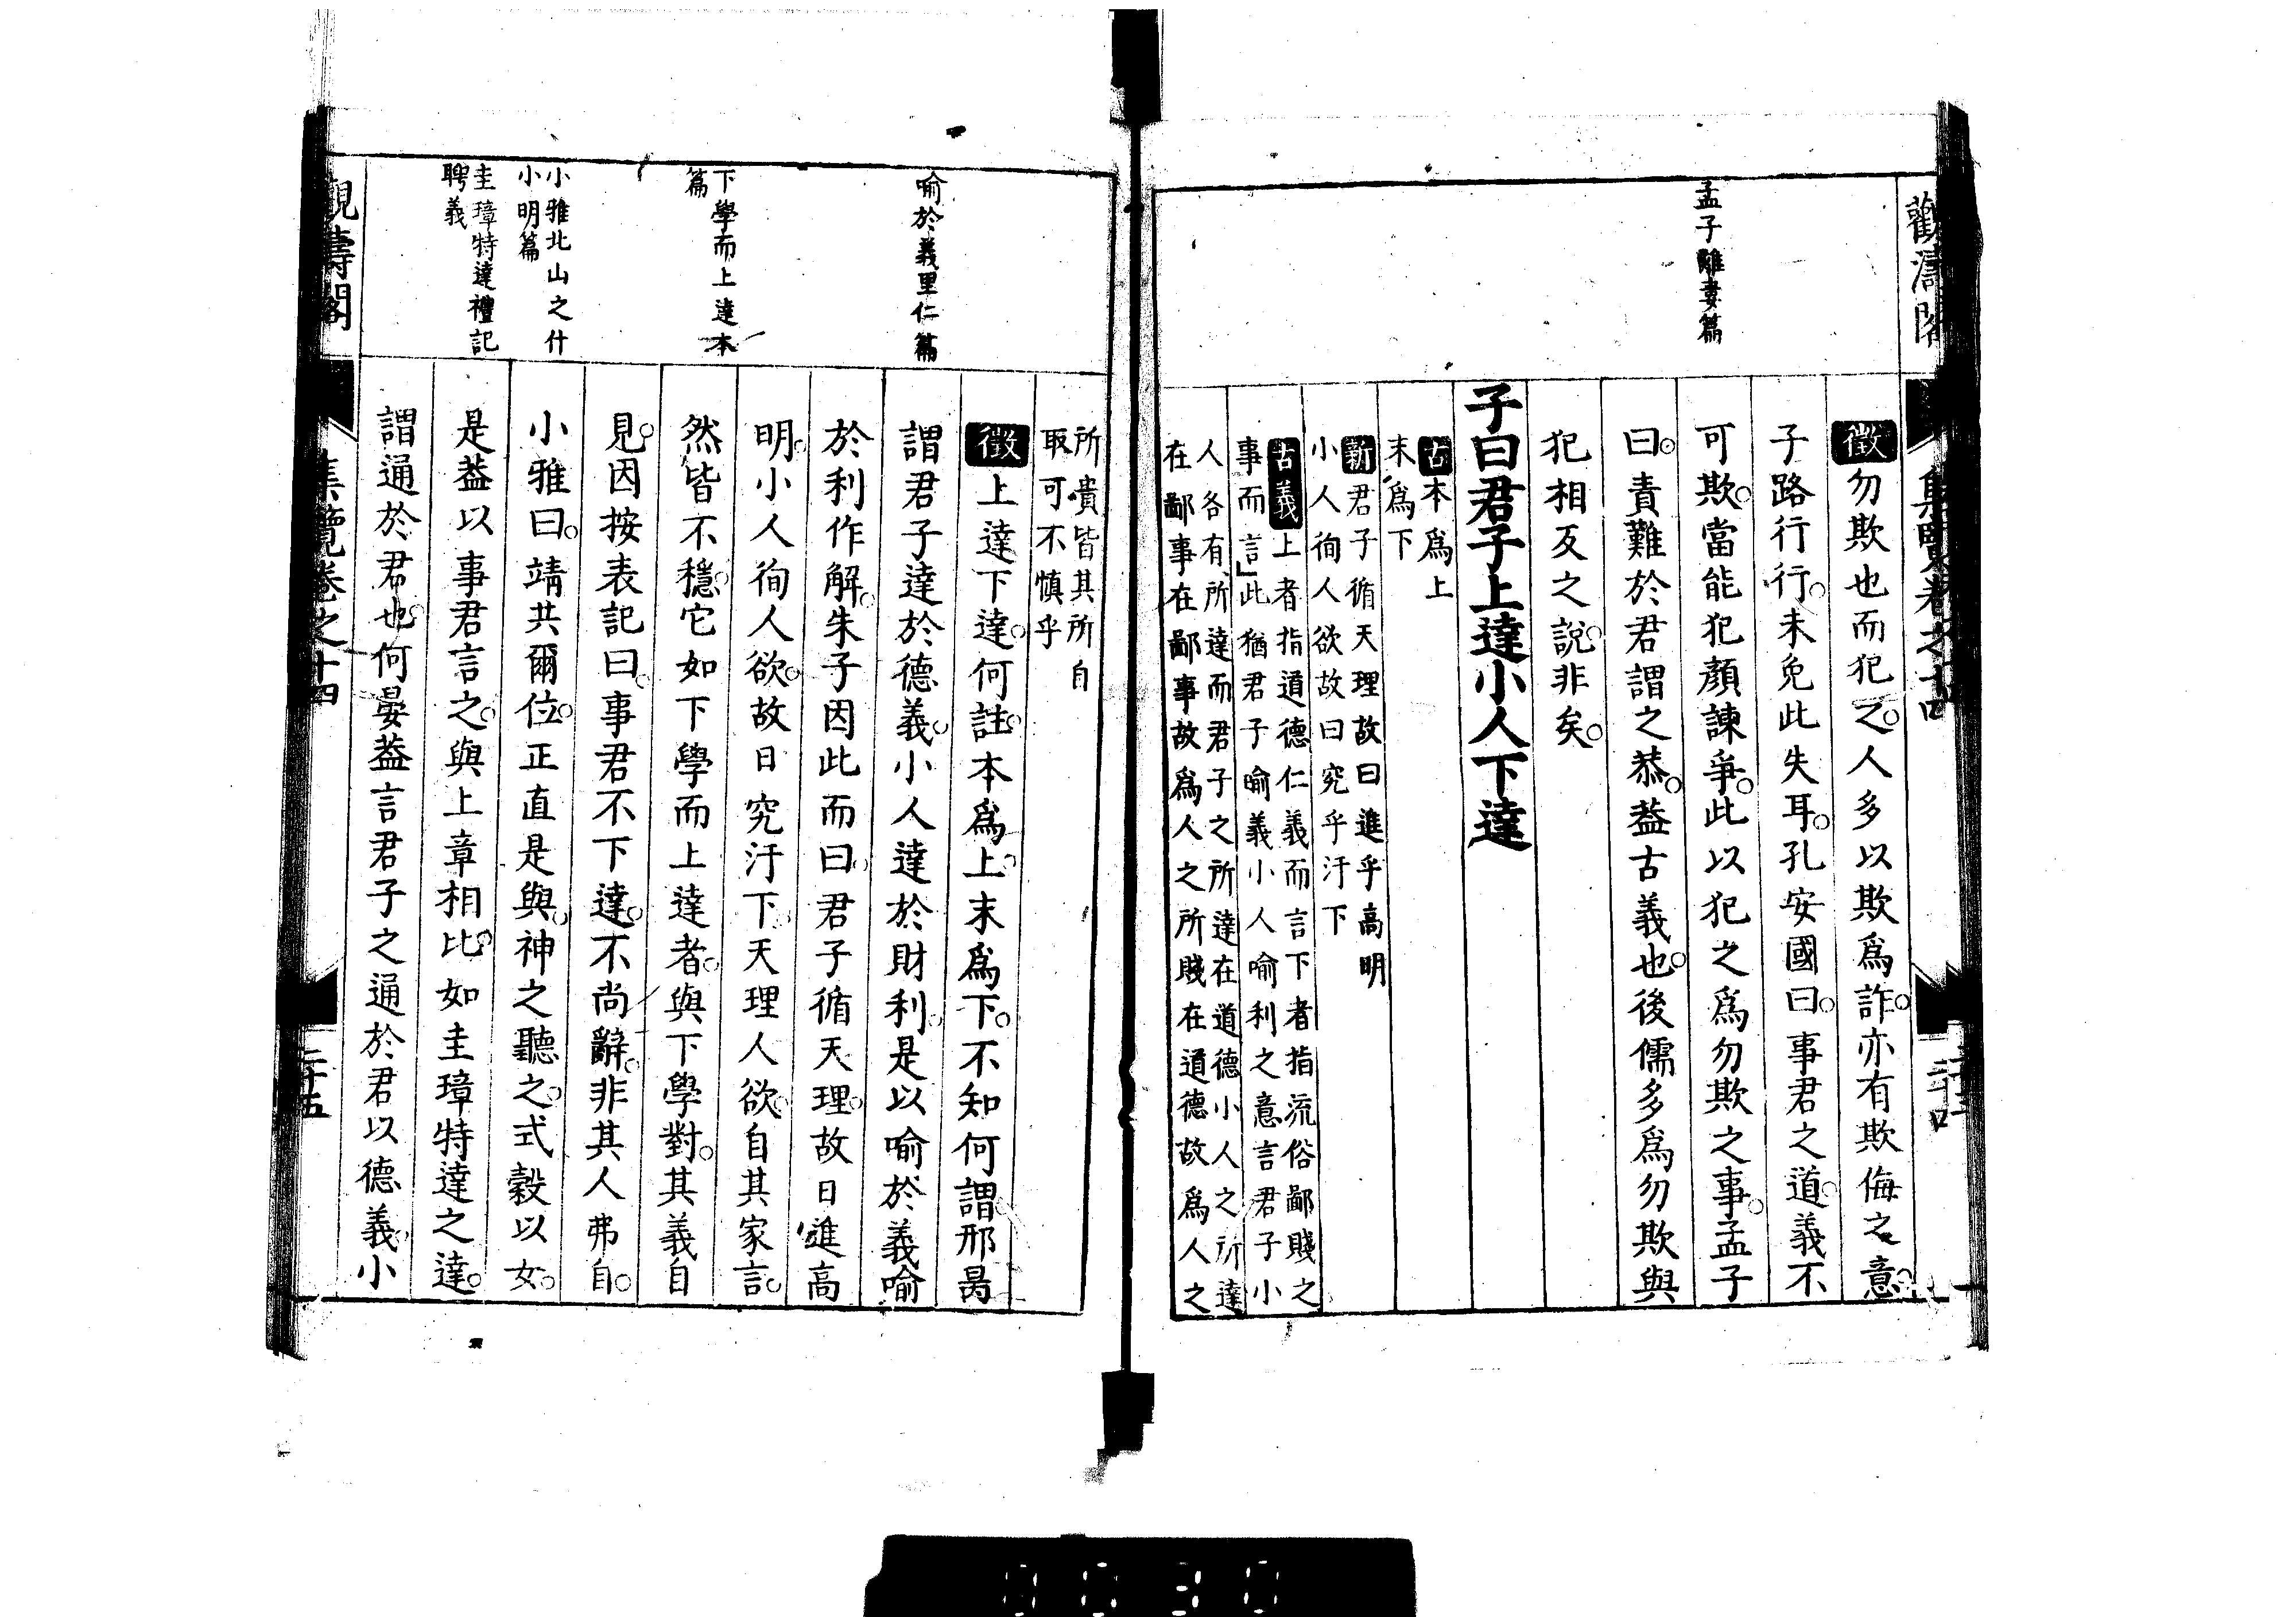 觀濤閣
集覽卷之十四
二十四
孟子離婁篇
徵勿欺也而犯之人多以欺爲詐亦有欺侮之意
子路行行未免此失耳孔安國曰事君之道義不
可欺當能犯顏諫爭此以犯之爲勿欺之事孟子
曰責難於君謂之恭蓋古義也後儒多爲勿欺與
犯相反之說非矣
子曰君子上達小人下達
古本爲上
末爲下
新君子循天理故曰進乎高明
小人徇人欲故曰究乎汙下
古義上者指道德仁義而言下者指流俗鄙賤之
事而言此猶君子喻義小人喻利之意言君子小
人各有所達而君子之所達在道德小人之所達
在鄙事在鄙事故爲人之所賤在道德故爲人之
喻於義里仁篇
下學而上達本
篇
小雅北山之什
小明篇
圭璋特達禮記
聘義
所貴皆其所自
取可不慎乎
徵上達下達何註本爲上末爲下不知何謂邢昺
謂君子達於德義小人達於財利是以喻於義喻
於利作解朱子因此而曰君子循天理故日進高
明小人徇人欲故日究汙下天理人欲自其家言
然皆不穩它如下學而上達者與下學對其義自
見因按表記曰事君不下達不尚辭非其人弗自
小雅曰靖共爾位正直是與神之聽之式穀以女
是蓋以事君言之與上章相比如圭璋特達之達
謂通於君也何晏蓋言君子之通於君以德義小
觀濤閣
集覽卷之十四
二十五
0030